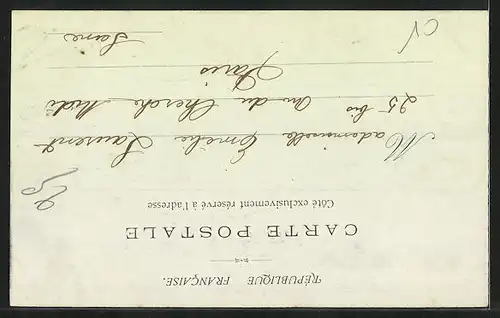 RÉPUBLIQUE FRANÇAISE.
CARTE POSTALE
Côté exclusivement réservé à l'adresse
Mademoiselle Emélie Laurent
25 bis du Cherche Midi
Paris
Seine